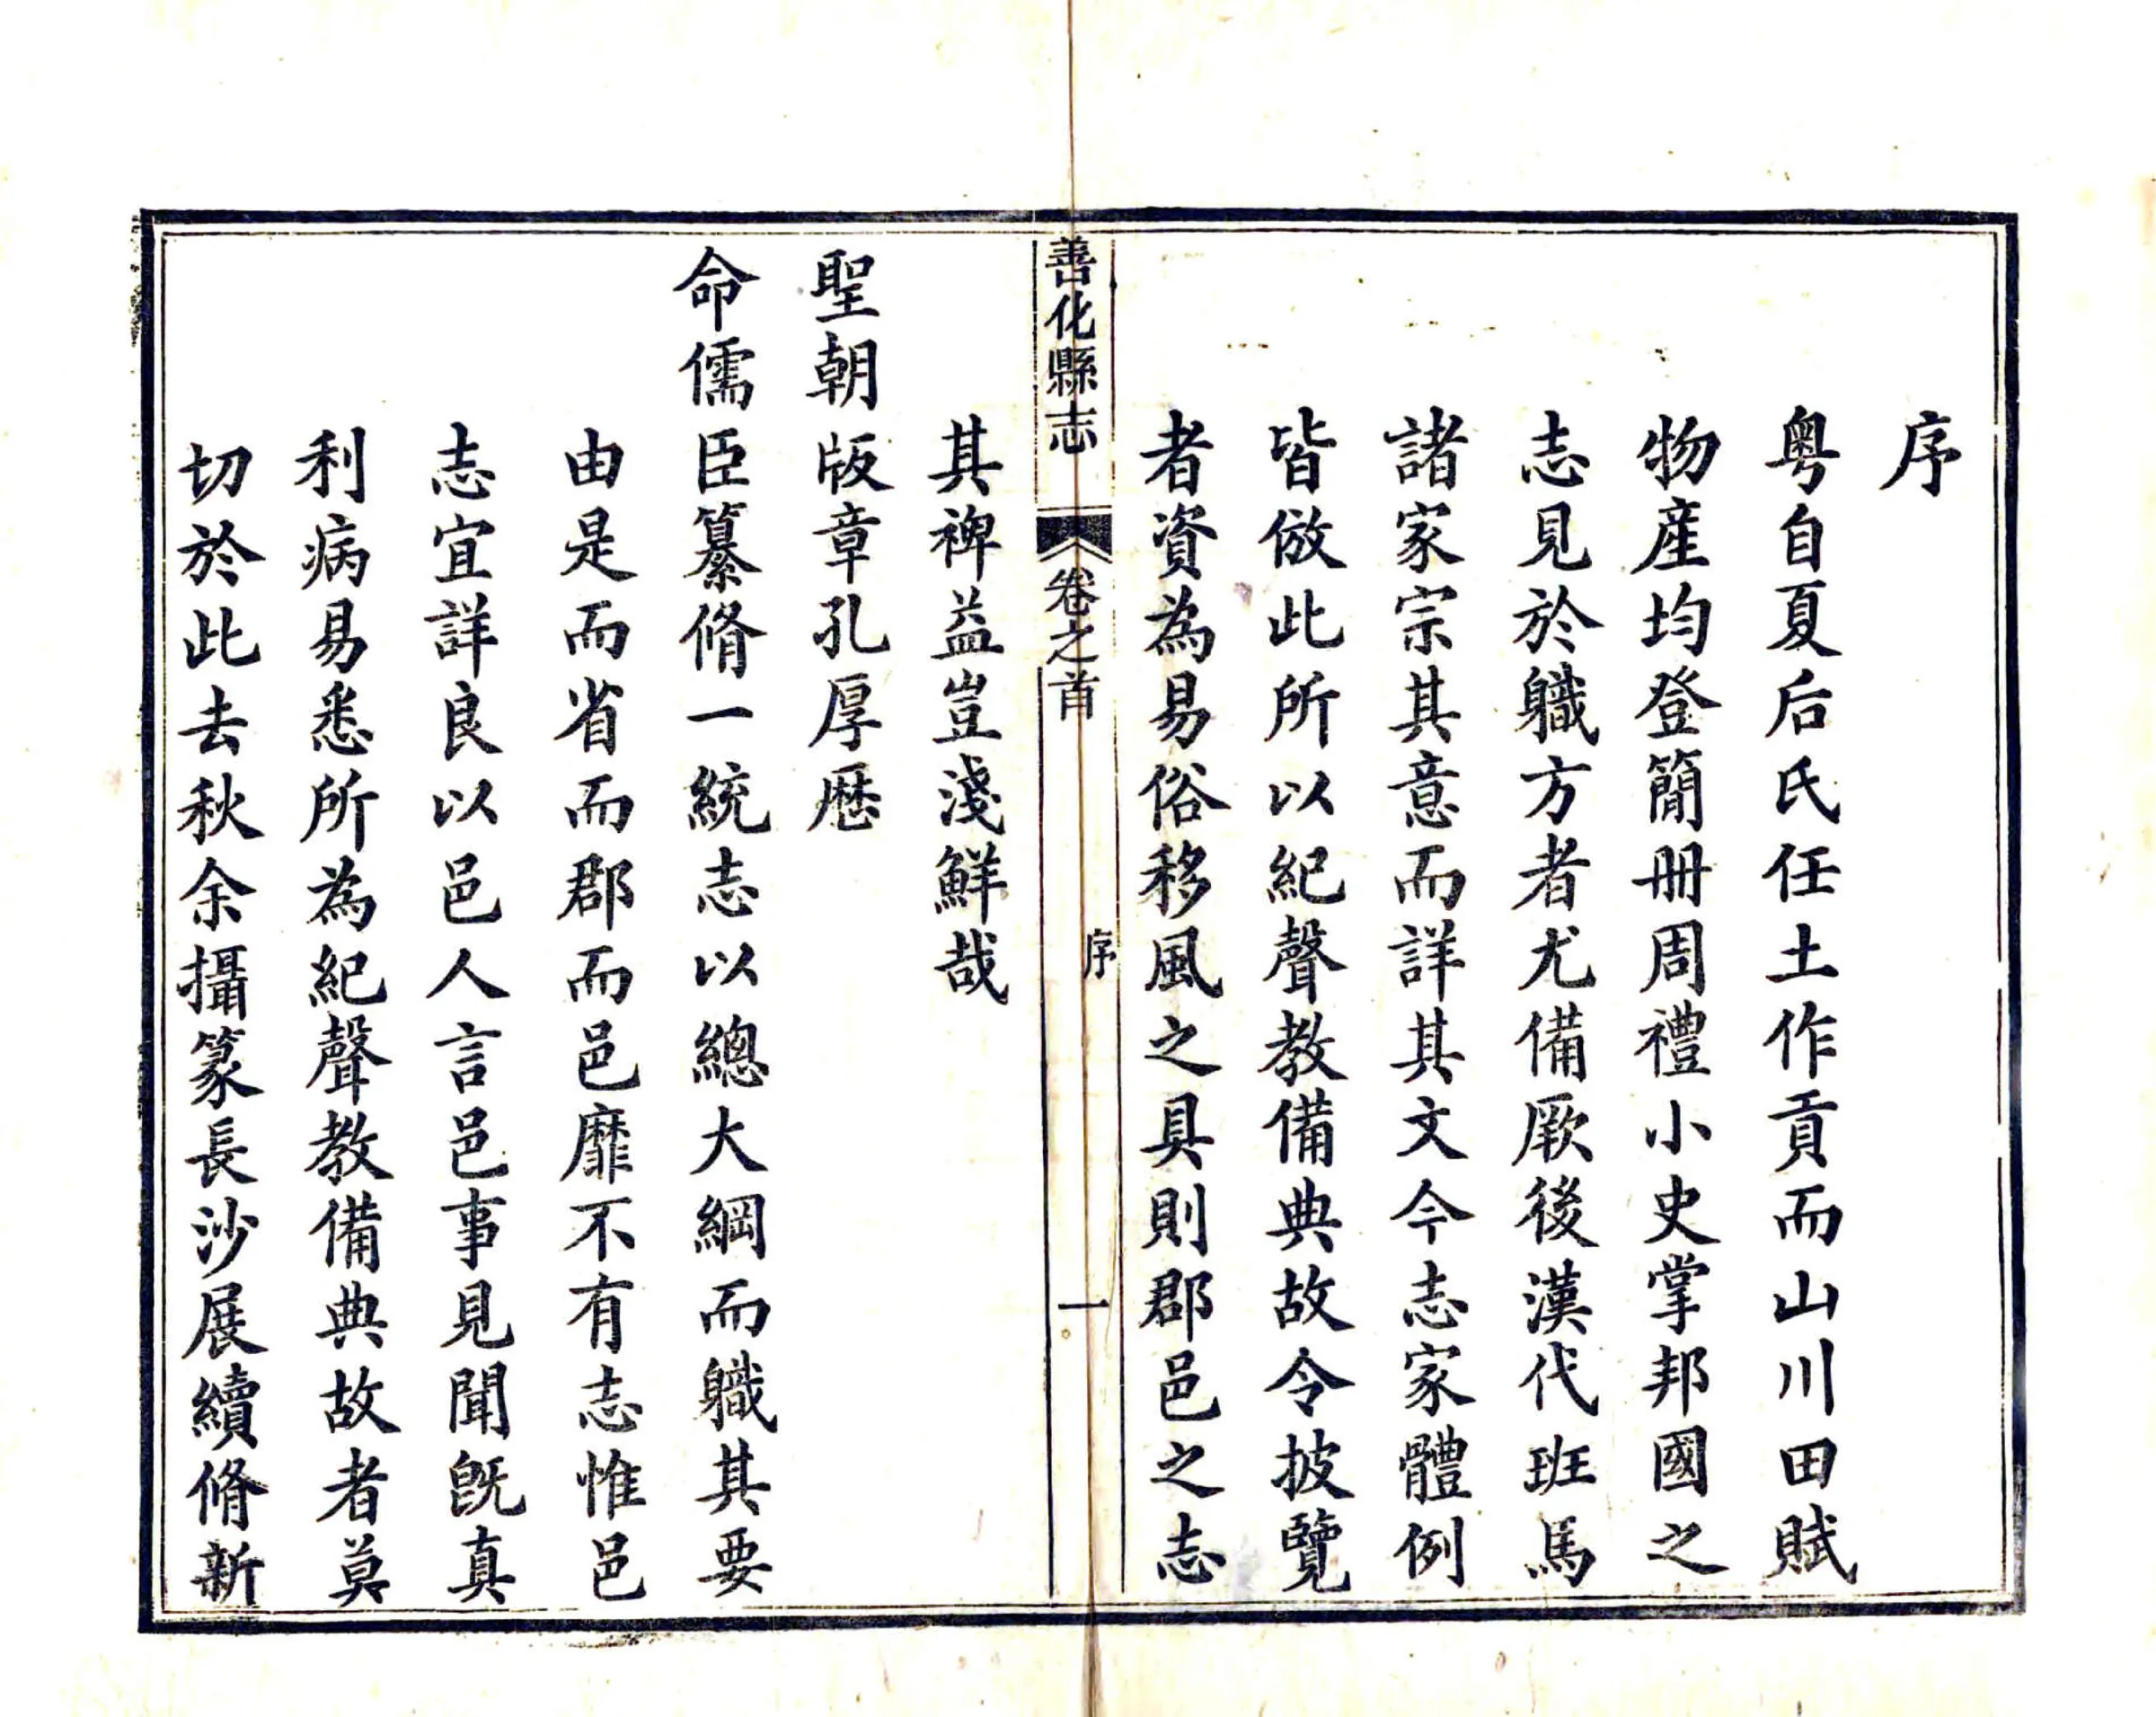 序
粤自夏后氏任土作貢而山川田賦
物産均登簡册周禮小史掌邦國之
志見於職方者尤備厥後漢代班馬
諸家宗其意而詳其文今志家體例
皆倣此所以紀聲教備典故令披覽
者資為易俗移風之具則郡邑之志
善化縣志
卷之首
序
一
其裨益豈淺鮮哉
聖朝版章孔厚歴
命儒臣纂脩一統志以總大綱而職其要
由是而省而郡而邑靡不有志惟邑
志宜詳良以邑人言邑事見聞既真
利病易悉所為紀聲教備典故者莫
切於此去秋余攝篆長沙展續脩新